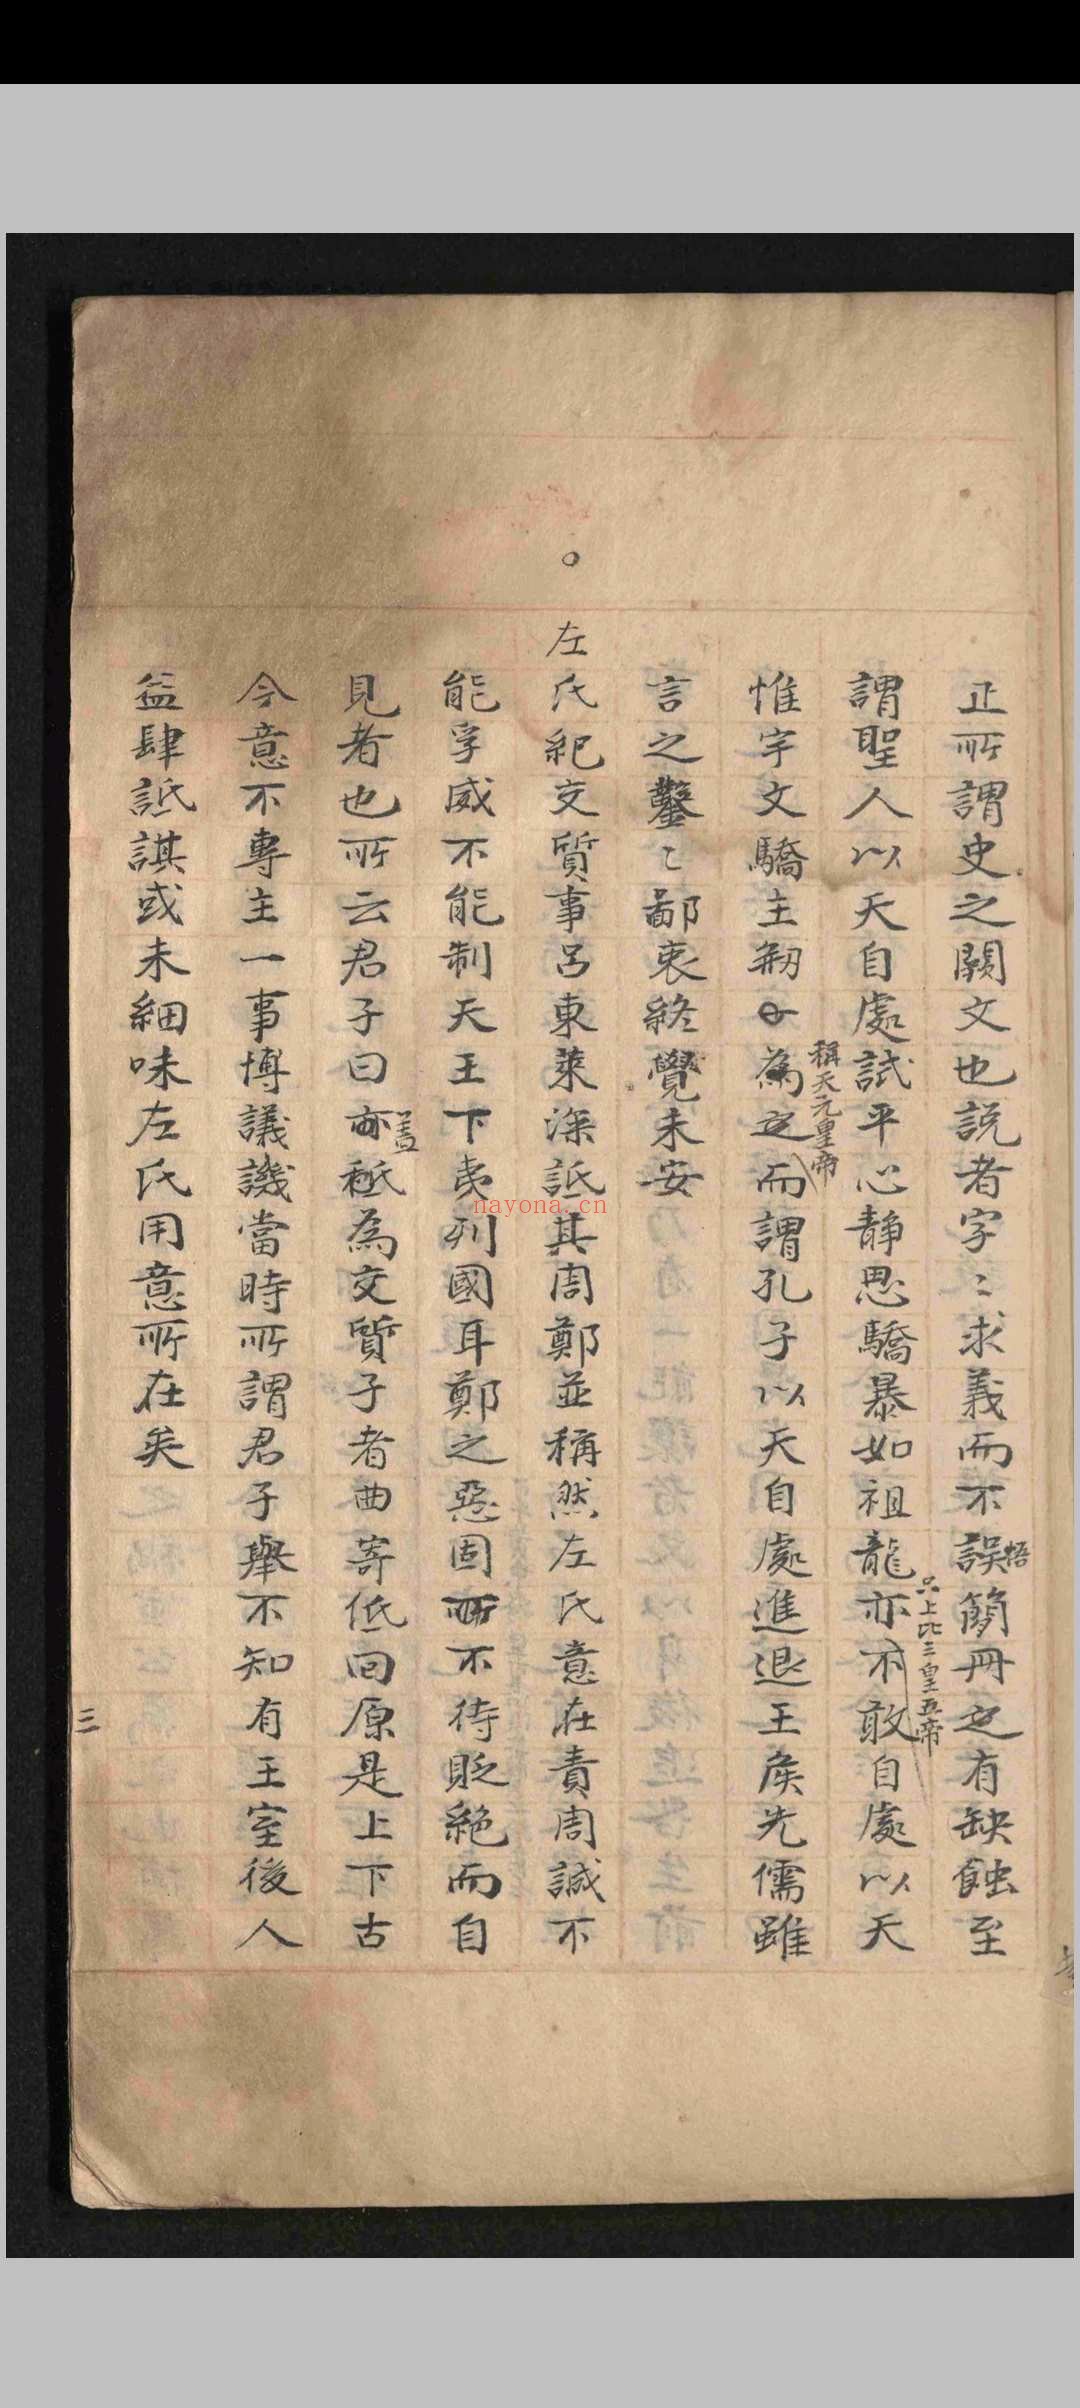 正所謂史之闕文也説者字〻求義而不誤簡冊之有缺蝕至
悟
謂聖人以天自處試平心靜思驕暴如祖龍亦不敢自處以天
只上比三皇五帝
惟宇文驕主剏為之而謂孔子以天自處進退王侯先儒雖
稱天元皇帝
言之鑿〻鄙衷終覺未安
左氏紀交質事呂東萊深詆其周鄭並稱然左氏意在責周誠不
能孚威不能制天王下夷列國耳鄭之惡固所不待貶絶而自
見者也所云君子曰亦秪為交質子者曲寄低回原是上下古
盖
今意不專主一事博議譏當時所謂君子舉不知有王室後人
益肆詆諆或未細味左氏用意所在矣
三
nayona.cn